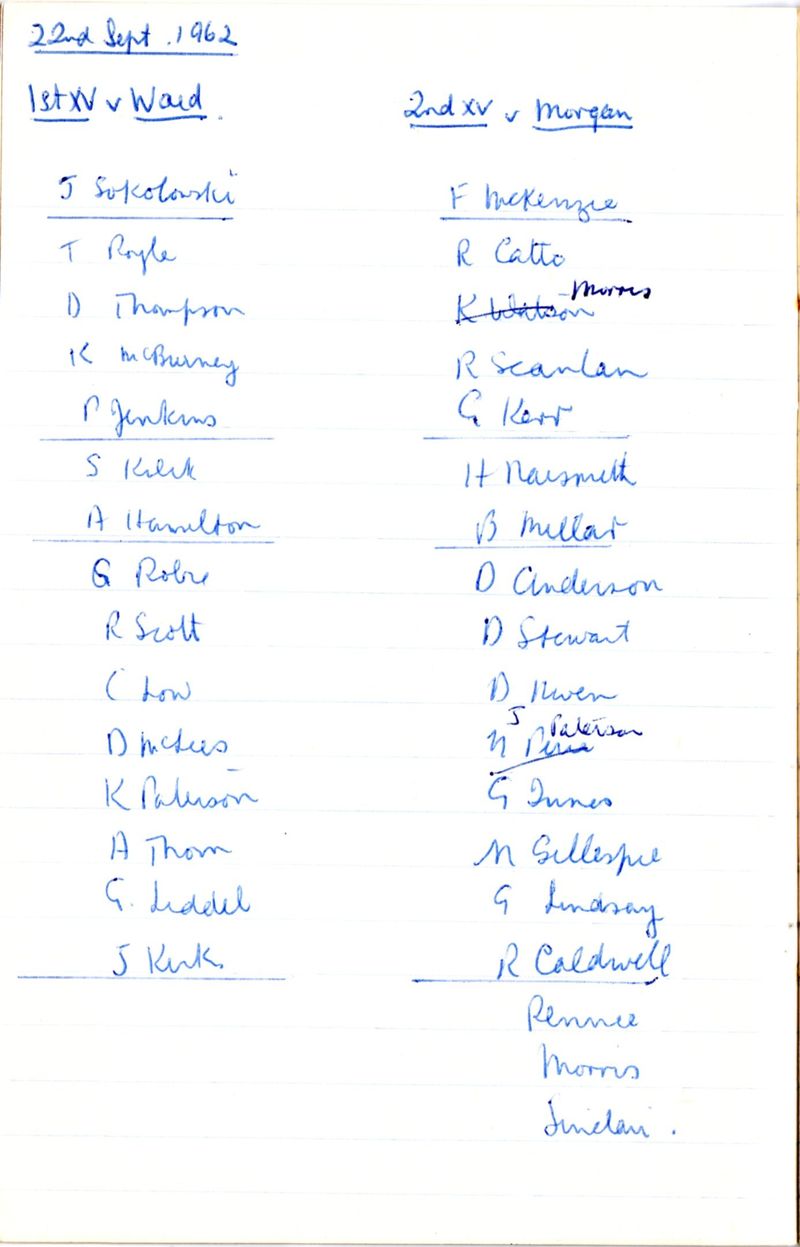 22nd Sept. 1962
1st XV v Waid.
J Sokolowski
T Royle
D Thompson
K McBurney
P Jenkins
S Kilk
A Hamilton
G Robie
R Scott
C Low
D McLees
K Paterson
A Thom
G. Liddel
J Kirk
2nd XV v Morgan
F McKenzie
R Catto
K Watson Morris
R Scanlan
G Kerr
H Naismith
B Millar
D Anderson
D Stewart
D
J Paterson
G Innes
N Gillespie
G Lindsay
R Caldwell
Rennie
Morris
Sinclair.